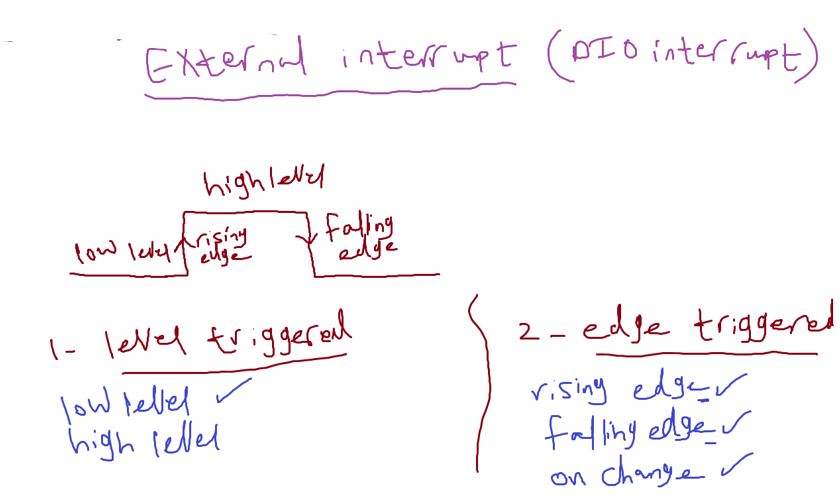 External interrupt (DIO interrupt)
high level
low level
rising
edge
falling
edge
1- level triggered
low level ✓
high level
2- edge triggered
rising edge ✓
falling edge ✓
on change ✓